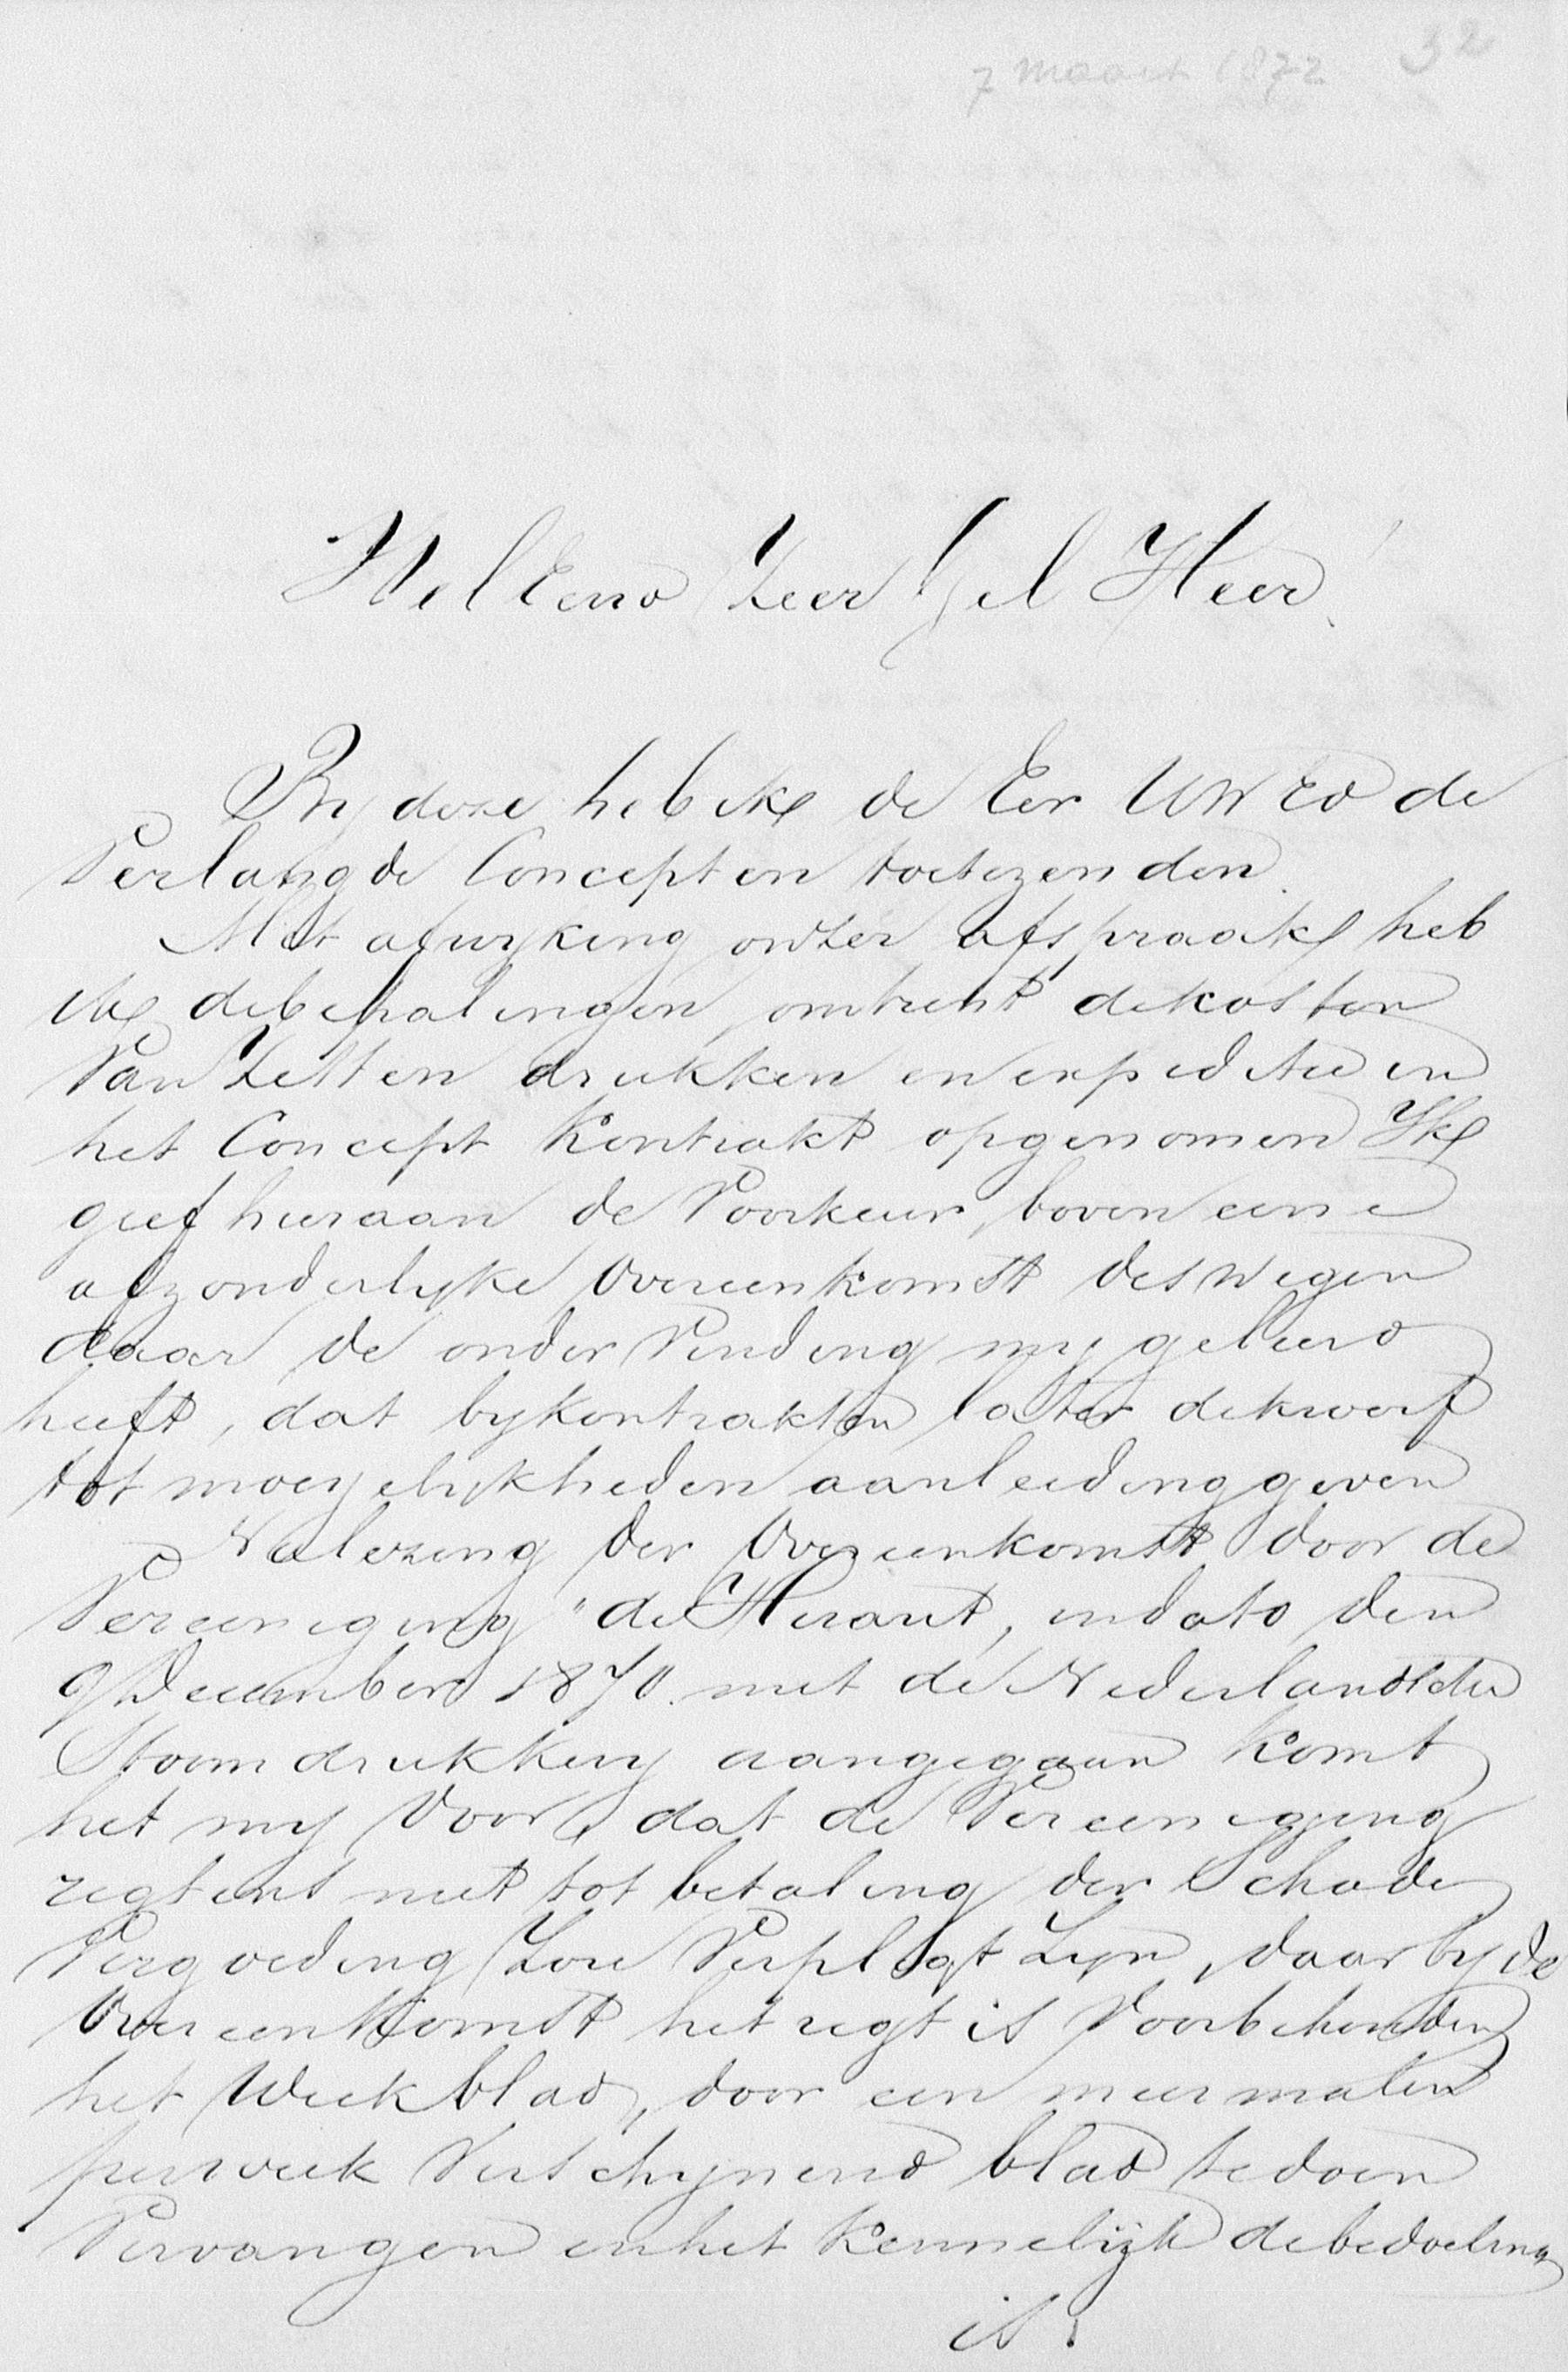 7 maart 1872 32
WelEerw Zeer Gel Heer!
By deze heb ik de Eer UWEd de
Verlangde Concepten toetezenden.
Met afwyking onzer afspraak heb
ik debepalingen omtrent dekosten
Van Zetten drukken en expeditie in
het Concept Kontrakt opgenomen Ik
geef hieraan de Voorkeur, boven eene
afzonderlyke Overeenkomst deswegen
daar de onderVinding my geleerd
heeft, dat bykontrakten later dikwerf
tot moeyelykheden aanleiding geven
Nalezing der Overeenkomst door de
Vereeniging "de Heraut, indato den
9 December 1870 met de Nederlandsche
Stoomdrukkery aangegaan komt
het my Voor, dat de Vereeniging
regtens niet tot betaling der Schade
Vergoeding Zou Verpligt Zyn, daar by de
Overeenkomst het regt is Voorbehouden
het Weekblad, door een meermalen
perweek Verschynend blad tedoen
Vervangen enhet Kennelijk debedoeling
is